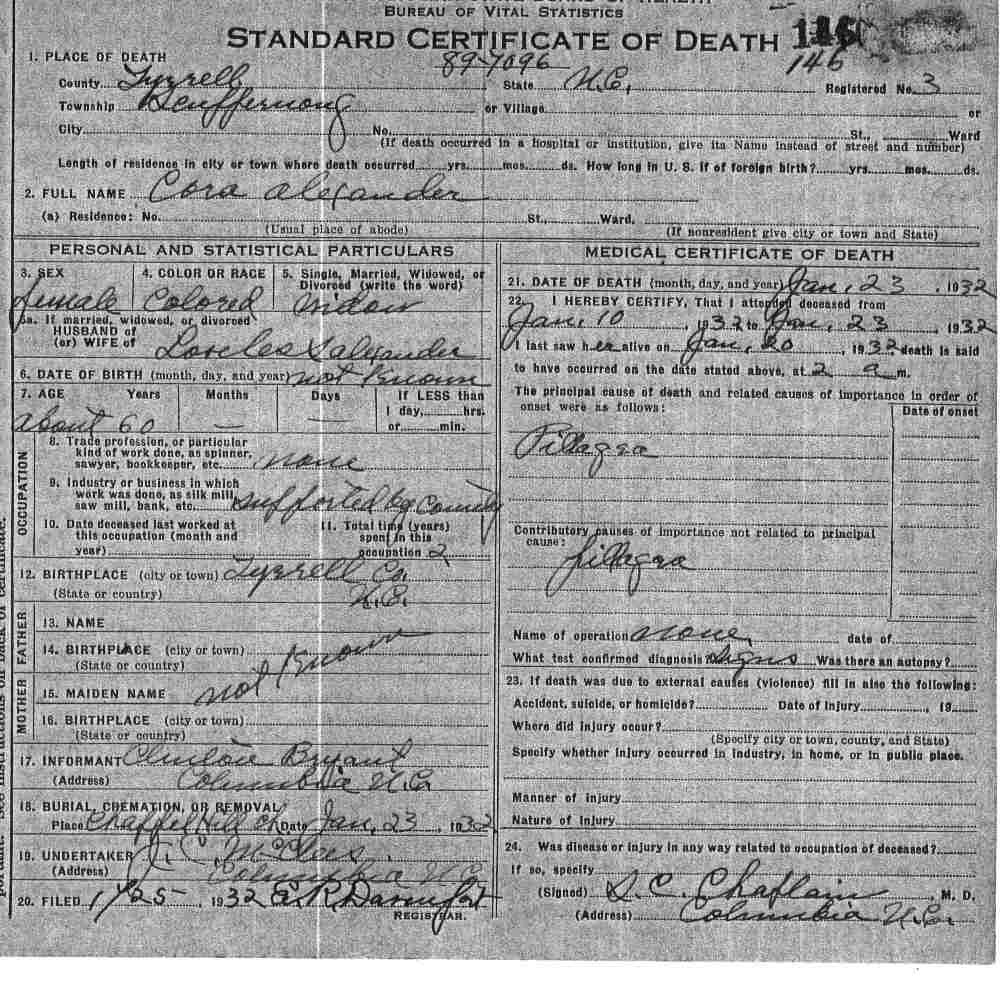 BUREAU OF VITAL STATISTICS
STANDARD CERTIFICATE OF DEATH 146
89-7096 146
1. PLACE OF DEATH
County Tyrrell State N.C. Registered No. 3
Township Scuffernong or Village or
City No. St., Ward
(If death occurred in a hospital or institution, give its Name instead of street and number)
Length of residence in city or town where death occurred yrs. mos. ds. How long in U. S. if of foreign birth? yrs. mos. ds.
2. FULL NAME Cora Alexander
(a) Residence: No. St., Ward.
(Usual place of abode) (If nonresident give city or town and State)
PERSONAL AND STATISTICAL PARTICULARS
3. SEX 4. COLOR OR RACE 5. Single, Married, Widowed, or
Divorced (write the word)
female Colored Widow
5a. If married, widowed, or divorced
HUSBAND of
(or) WIFE of Alexander
6. DATE OF BIRTH (month, day, and year) not Known
7. AGE Years Months Days If LESS than
1 day, hrs.
or min.
about 60 — —
OCCUPATION
8. Trade profession, or particular
kind of work done, as spinner,
sawyer, bookkeeper, etc. none
9. Industry or business in which
work was done, as silk mill,
saw mill, bank, etc. supported by County
10. Date deceased last worked at
this occupation (month and
year)
11. Total time (years)
spent in this
occupation 2
12. BIRTHPLACE (city or town) Tyrrell Co.
(State or country) N.C.
FATHER
13. NAME
14. BIRTHPLACE (city or town)
(State or country)
not Known
MOTHER
15. MAIDEN NAME
16. BIRTHPLACE (city or town)
(State or country)
17. INFORMANT Clinton Bryant
(Address) Columbia N.C.
18. BURIAL, CREMATION, OR REMOVAL
Place Chappel Hill Ch Date Jan, 23, 1932
19. UNDERTAKER J. C. McClees
(Address) Columbia N.C.
20. FILED 1/25, 1932 E. R. Davenport
REGISTRAR.
MEDICAL CERTIFICATE OF DEATH
21. DATE OF DEATH (month, day, and year) Jan, 23, 1932
22. I HEREBY CERTIFY, That I attended deceased from
Jan, 10, 1932 to Jan, 23, 1932
I last saw her alive on Jan, 20, 1932 death is said
to have occurred on the date stated above, at 2 a m.
The principal cause of death and related causes of importance in order of
onset were as follows:
Date of onset
Pillagra
Contributory causes of importance not related to principal
cause:
pillagra
Name of operation none, date of
What test confirmed diagnosis signs Was there an autopsy?
23. If death was due to external causes (violence) fill in also the following:
Accident, suicide, or homicide? Date of injury , 19
Where did injury occur?
(Specify city or town, county, and State)
Specify whether injury occurred in industry, in home, or in public place.
Manner of injury
Nature of injury
24. Was disease or injury in any way related to occupation of deceased?
If so, specify
(Signed) S. C. Chaplain, M. D.
(Address) Columbia N.C.